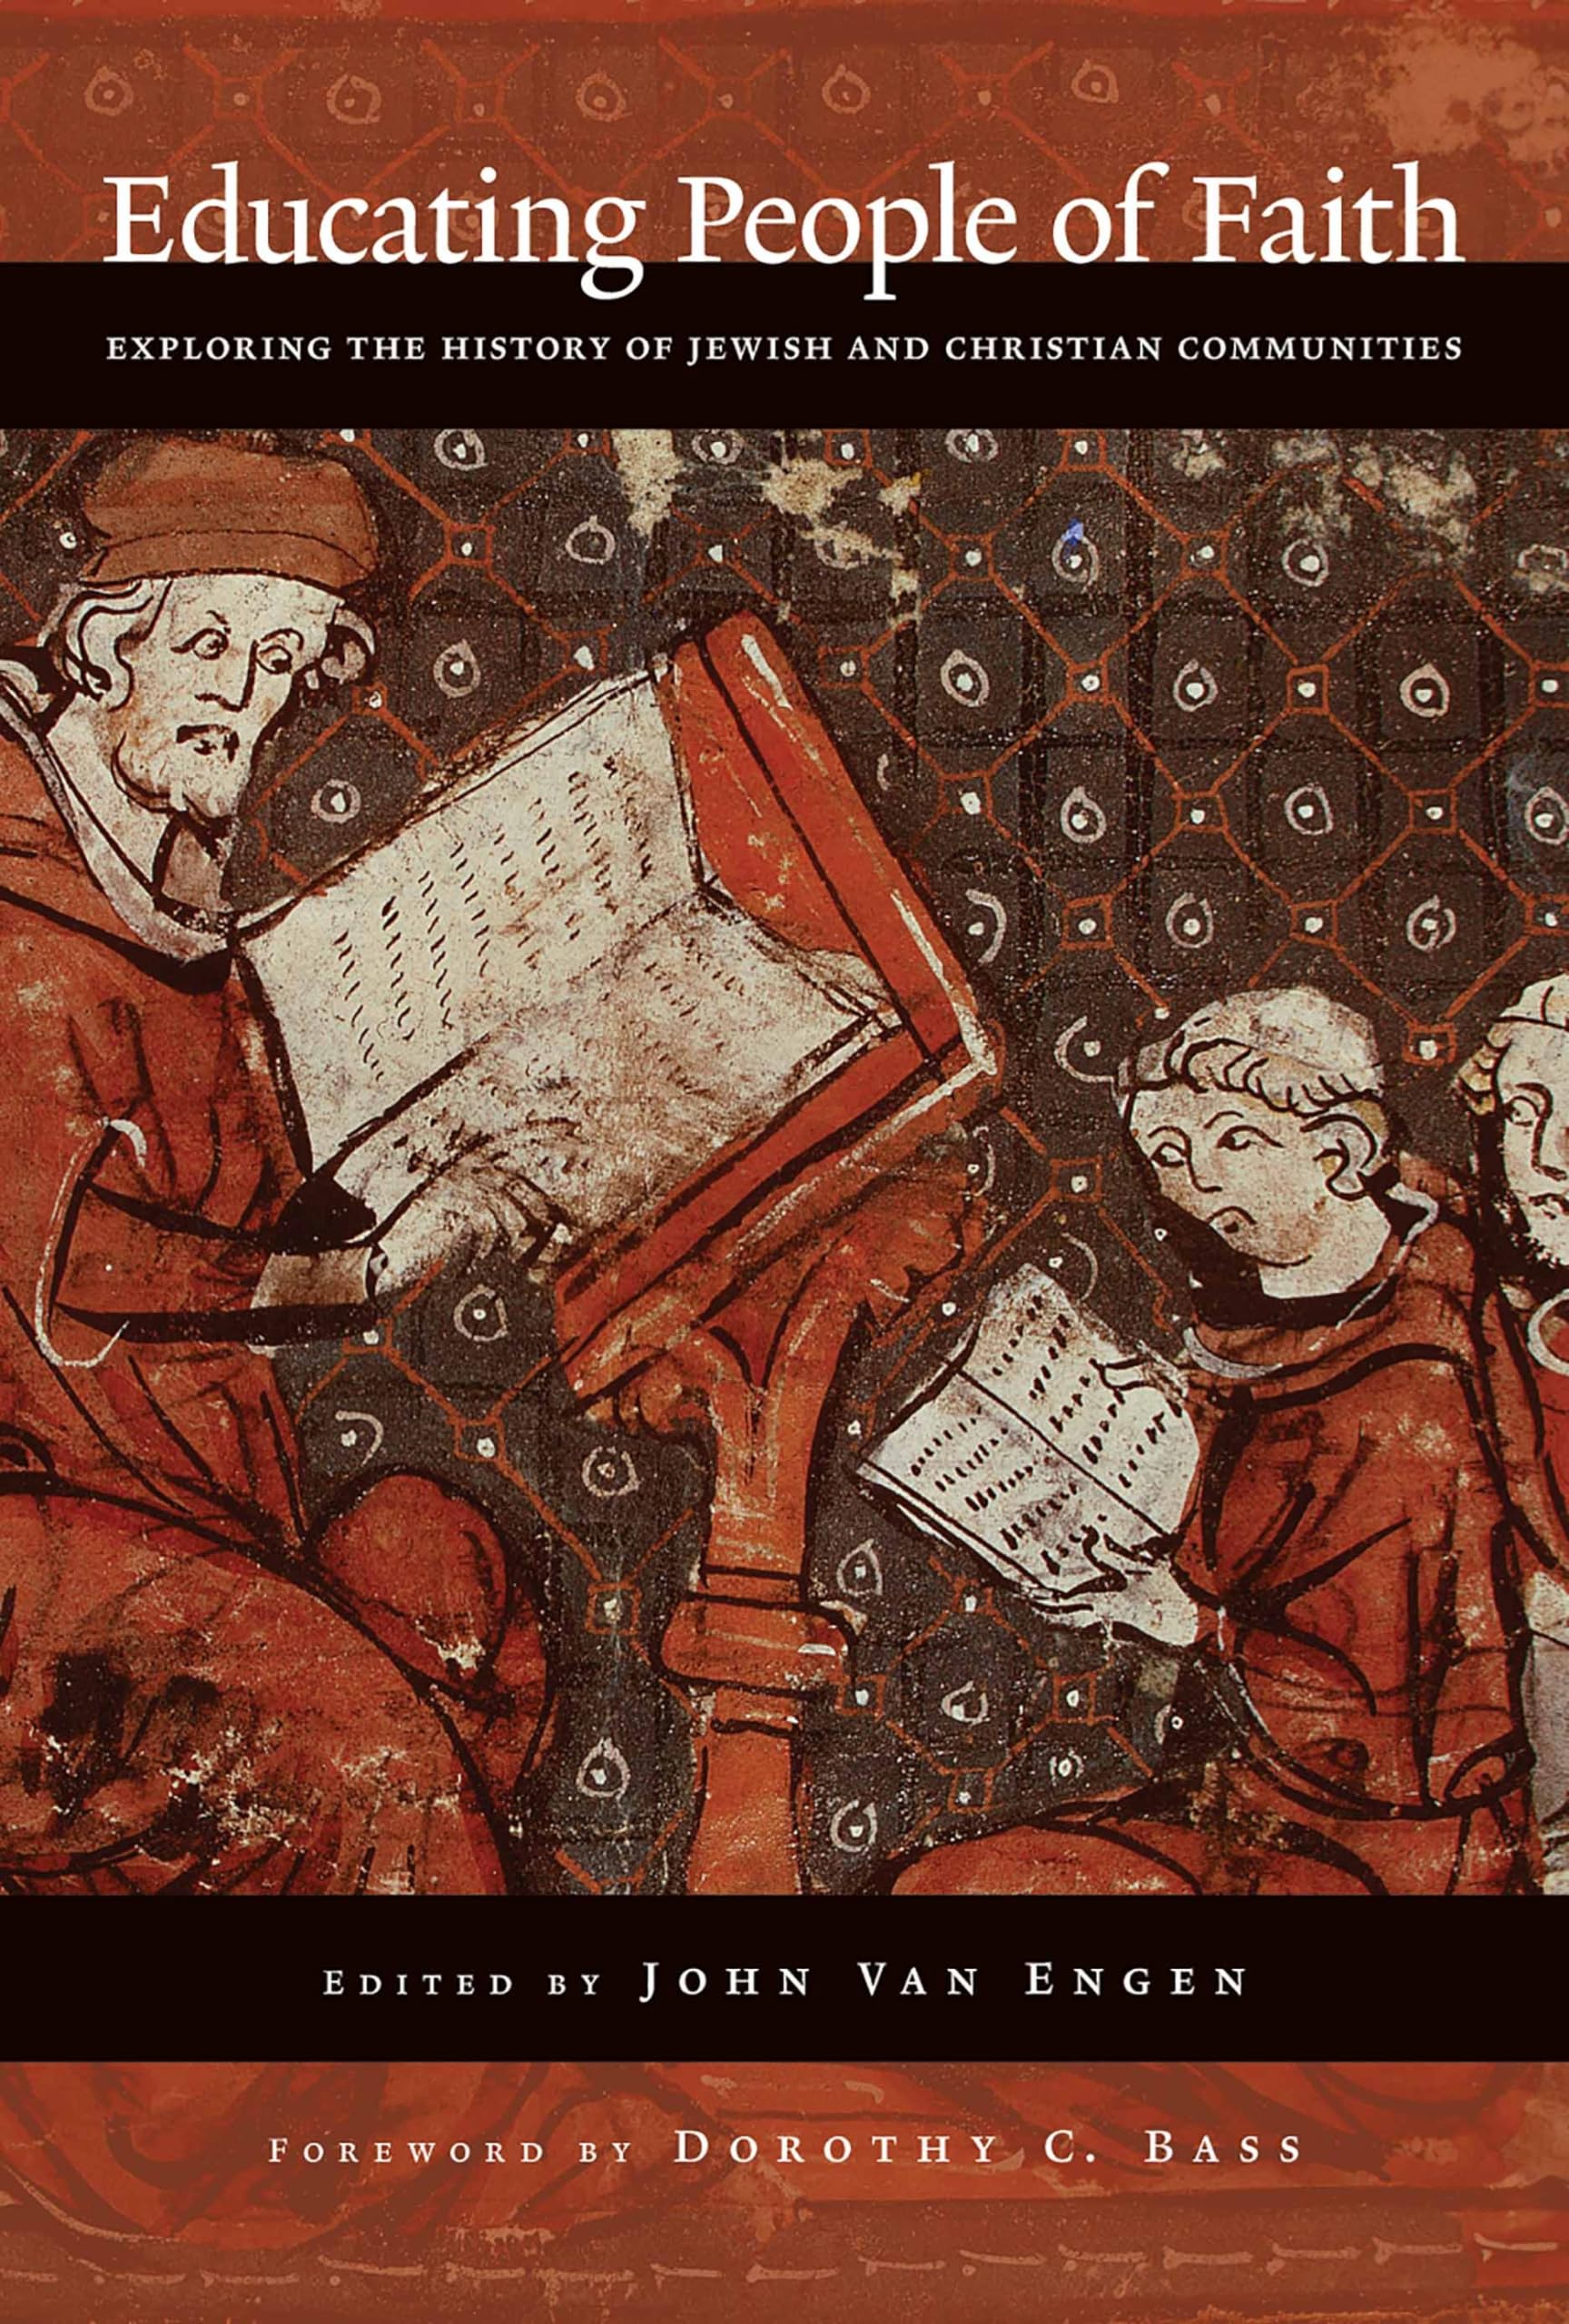 Educating People of Faith
EXPLORING THE HISTORY OF JEWISH AND CHRISTIAN COMMUNITIES
EDITED BY JOHN VAN ENGEN
FOREWORD BY DOROTHY C. BASS